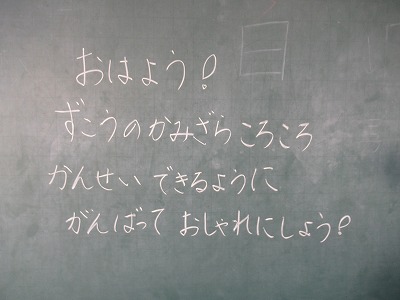 おはよう!
ずこうのかみざらころころ
かんせいできるように
がんばっておしゃれにしよう!